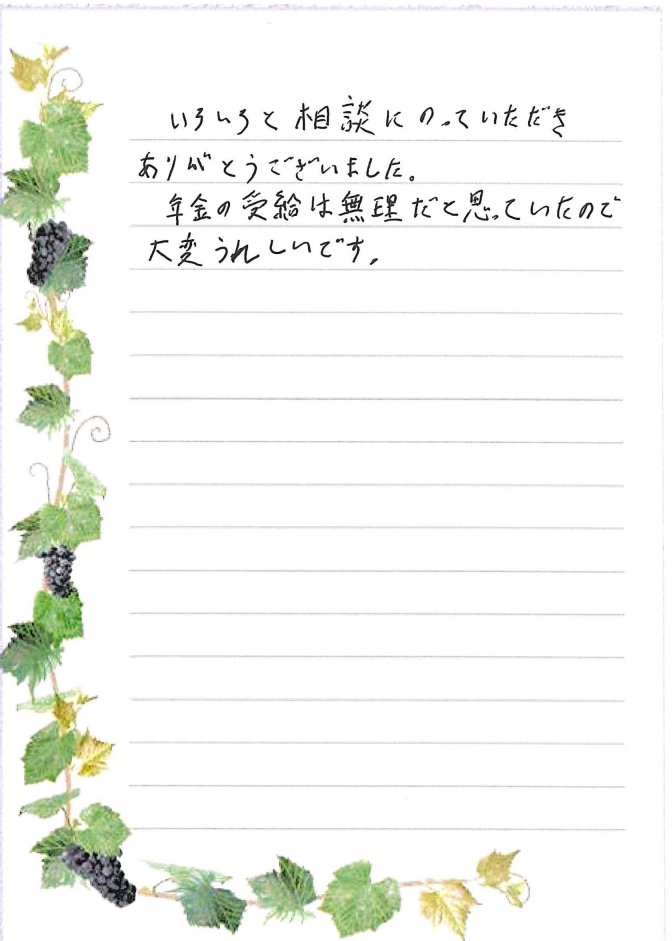 いろいろと相談にのっていただき
ありがとうございました。
年金の受給は無理だと思っていたので
大変うれしいです。